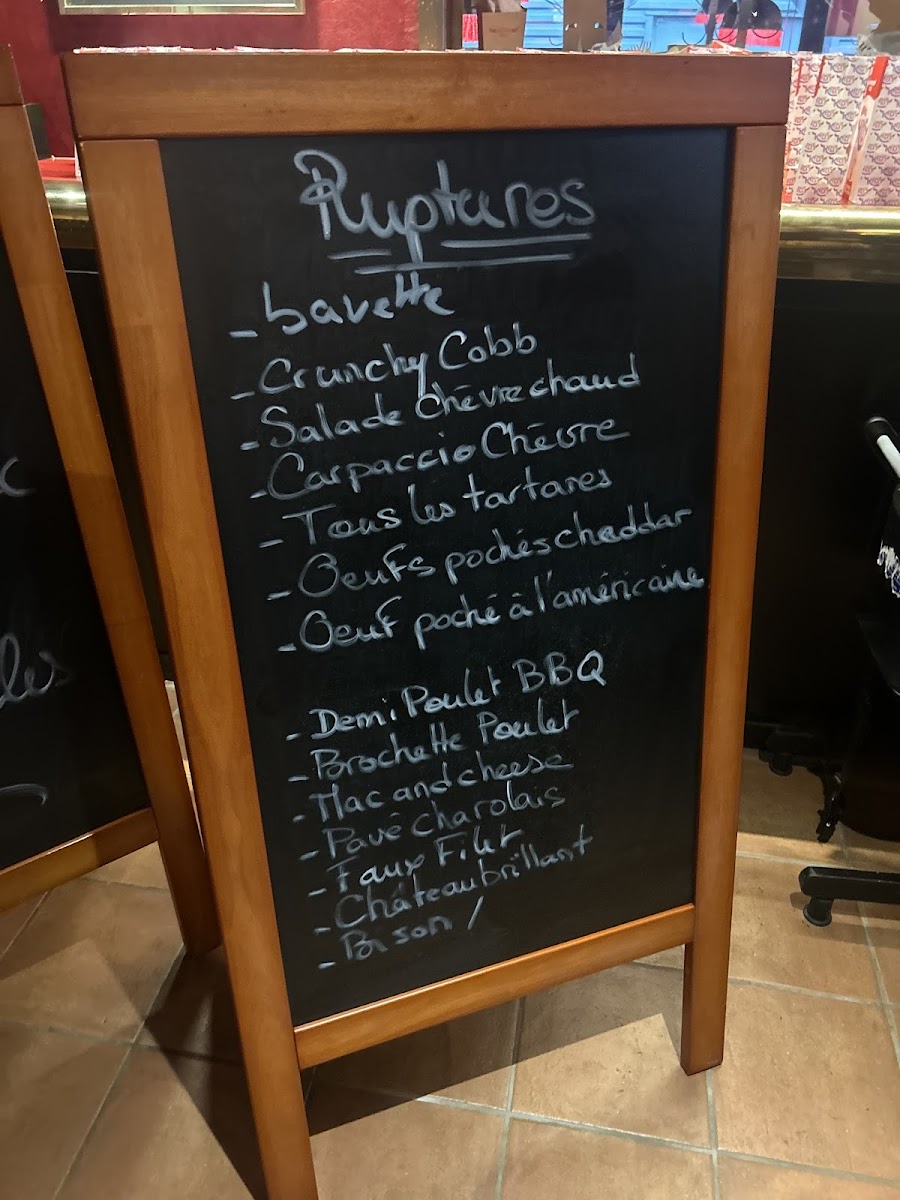 Ruptures
- bavette
- Crunchy Cobb
- Salade chèvre chaud
- Carpaccio Chèvre
- Tous les tartares
- Oeufs pochés cheddar
- Oeuf poché à l'américaine
- Demi Poulet BBQ
- Brochette Poulet
- Mac and cheese
- Pavé charolais
- Faux Filet
- Châteaubrillant
- Bison /